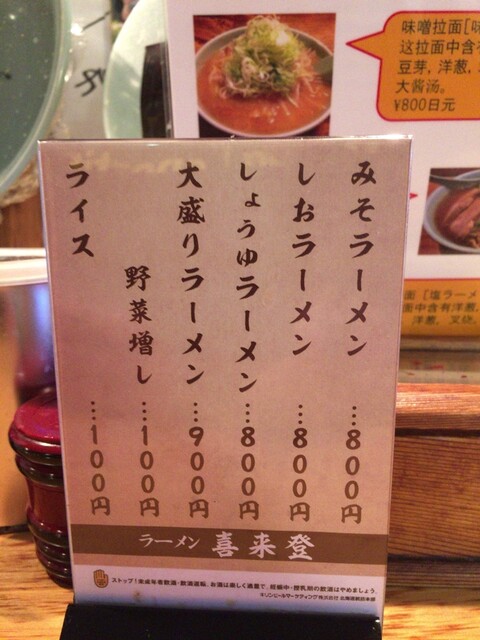 みそラーメン …800円
しおラーメン …800円
しょうゆラーメン …800円
大盛りラーメン …900円
野菜増し …100円
ライス …100円
ラーメン 喜来登
ストップ!未成年者飲酒・飲酒運転。お酒は楽しく適量で。妊娠中・授乳期の飲酒はやめましょう。
キリンビールマーケティング株式会社 北海道統括本部
味噌拉面[味
这拉面中含有
豆芽, 洋葱,
大酱汤。
¥800日元
面 [塩ラーメ
面中含有洋葱,
洋葱, 叉烧,